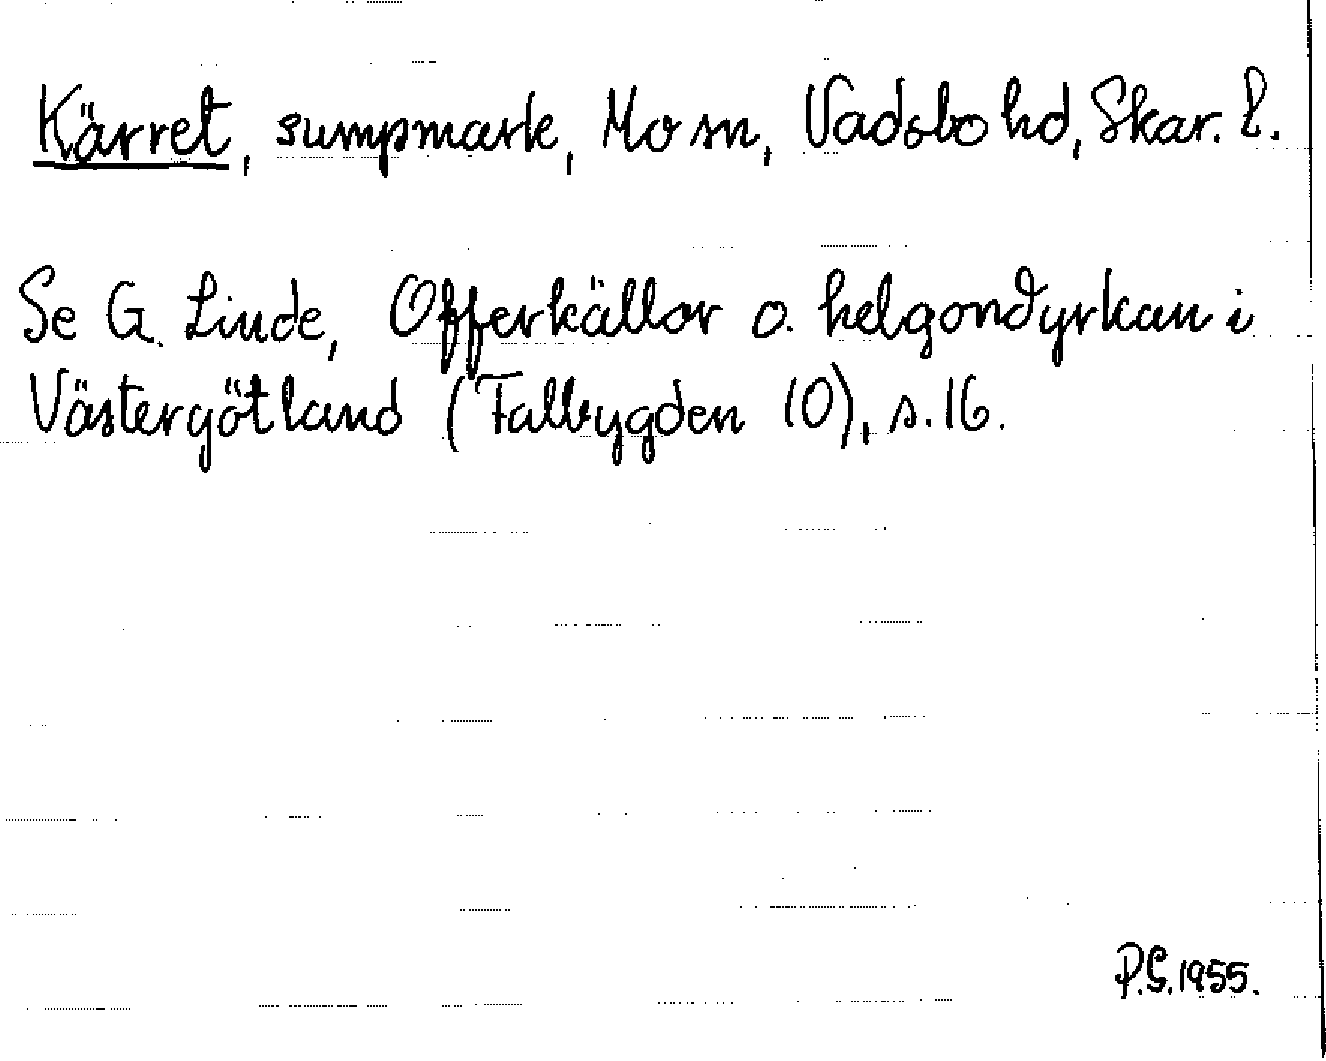 Kärret, sumpmark, Mo sn, Vadsbo hd, Skar. l.
Se G. Linde, Offerkällor o. helgondyrkan i
Västergötland (Falbygden 10), s.16.
P.G.1955.